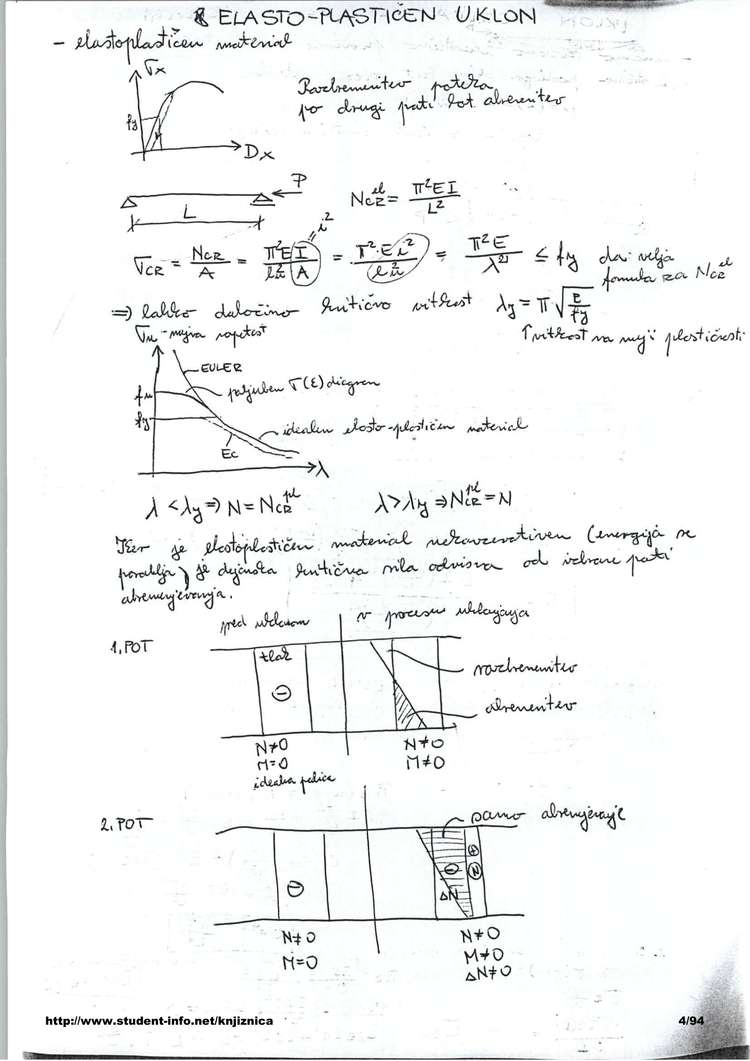 ELASTO-PLASTIČEN UKLON
- elastoplastičen material
σx
fy
Dx
Razbremenitev poteka
po drugi poti kot obremenitev
P
L
Ncr^el = π²EI / L²
i²
σcr = Ncr / A = π²EI / lu² A = π²·E i² / lu² = π²E / λ² ≤ fy da velja
formula za Ncr^el
⇒ lahko določimo kritično vitkost λy = π √(E / fy)
σu - mejna napetost
↑ vitkost na meji plastičnosti
EULER
fu
poljuben σ(ε) diagram
fy
idealen elasto-plastičen material
Ec
λ
λ < λy ⇒ N = Ncr^pl λ > λy ⇒ Ncr^pl = N
Ker je elastoplastičen material nekonzervativen (energija se
porablja) je dejanska kritična sila odvisna od izbrane poti
obremenjevanja.
pred uklonom v procesu uklanjanja
1. POT
tlak
⊖
razbremenitev
obremenitev
N≠0 N≠0
M=0 M≠0
idealna palica
2. POT
samo obremenjevanje
⊕
⊖ ⊖ N
ΔN
N≠0 N≠0
M=0 M≠0
ΔN≠0
http://www.student-info.net/knjiznica 4/94